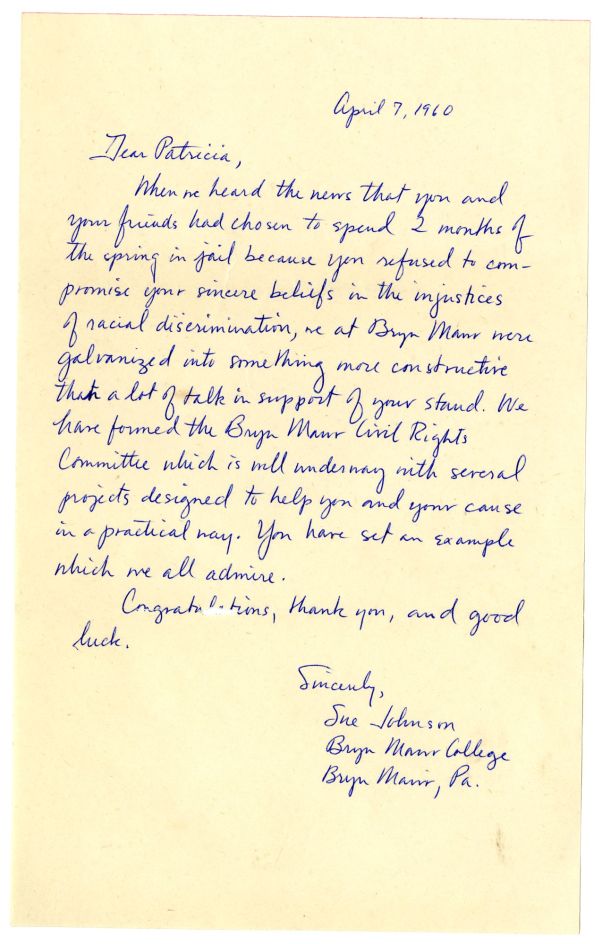 April 7, 1960
Dear Patricia,
When we heard the news that you and
your friends had chosen to spend 2 months of
the spring in jail because you refused to com-
promise your sincere beliefs in the injustices
of racial discrimination, we at Bryn Mawr were
galvanized into something more constructive
than a lot of talk in support of your stand. We
have formed the Bryn Mawr Civil Rights
Committee which is well underway with several
projects designed to help you and your cause
in a practical way. You have set an example
which we all admire.
Congratulations, thank you, and good
luck.
Sincerely,
Sue Johnson
Bryn Mawr College
Bryn Mawr, Pa.